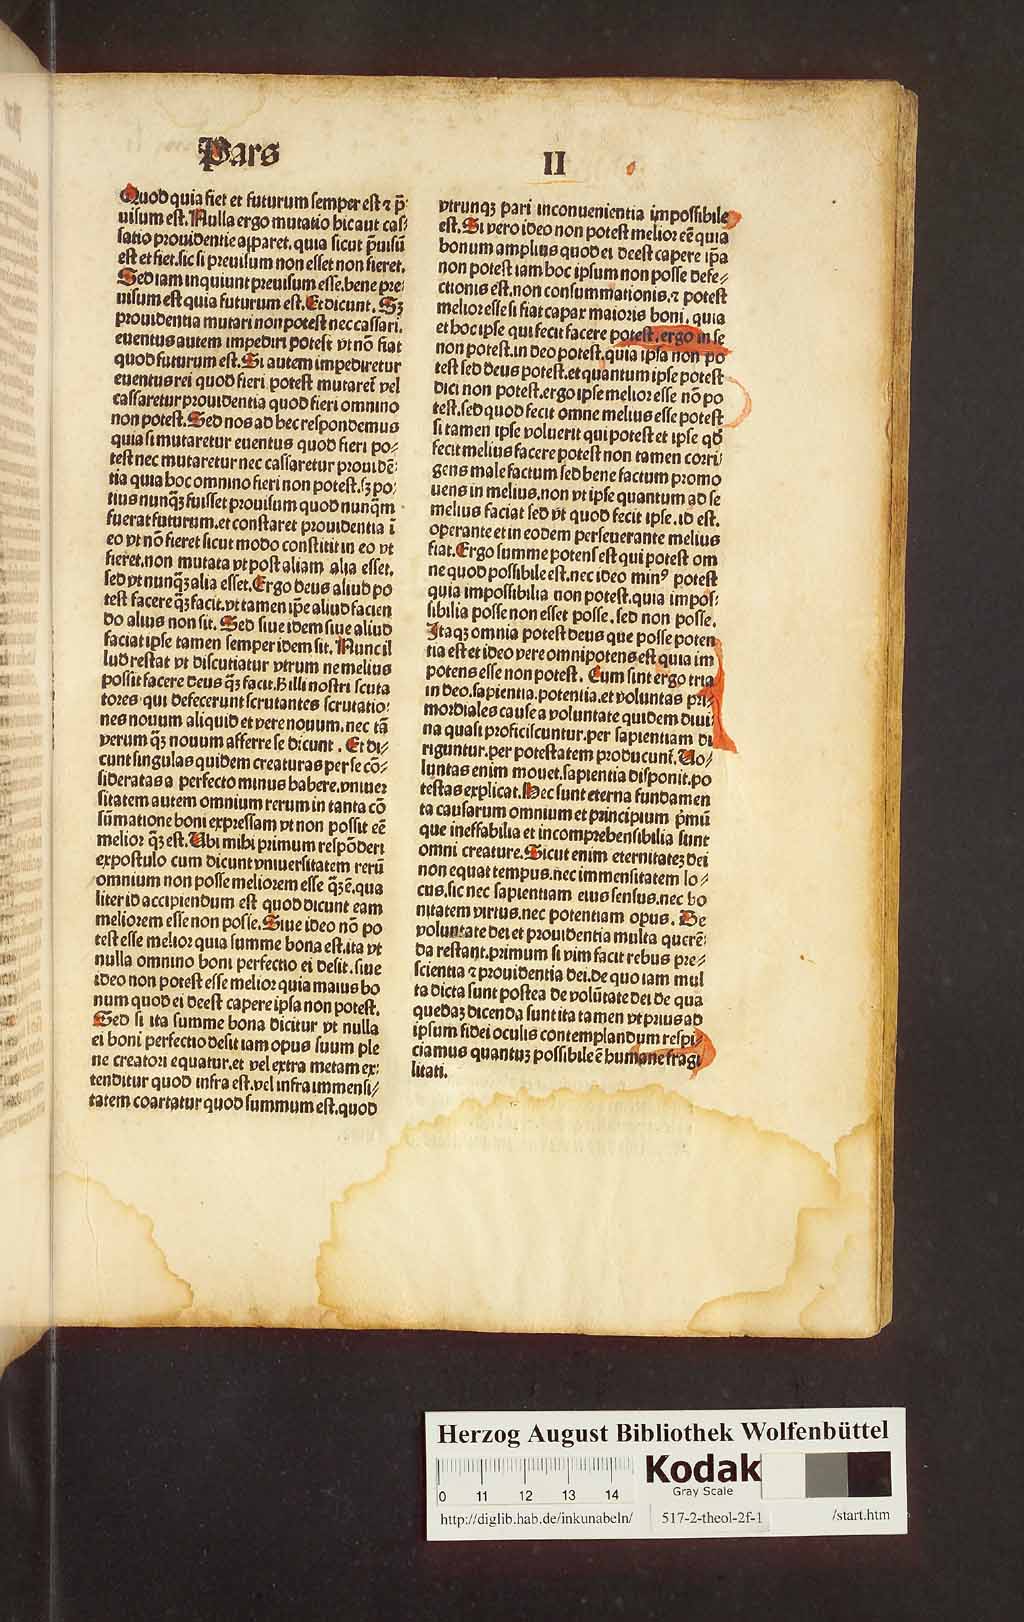 Pars
II
Quod quia fiet et futurum semper est ⁊ p̄
uisum est. Nulla ergo mutatio hic aut cas⸗
satio prouidentie apparet. quia sicut p̄uisū
est et fiet. sic si preuisum non esset non fieret.
Sed iam inquiunt preuisum esse. bene pre⸗
uisum est quia futurum est. Et dicunt. Sꝫ
prouidentia mutari non potest nec cassari.
euentus autem impediri potest vt nō fiat
quod futurum est. Si autem impediretur
euentus rei quod fieri potest mutaret᷑ vel
cassaretur prouidentia quod fieri omnino
non potest. Sed nos ad hec respondemus
quia si mutaretur euentus quod fieri po⸗
test nec mutaretur nec cassaretur prouidē⸗
tia quia hoc omnino fieri non potest. sꝫ po⸗
tius nunqꝫ fuisset prouisum quod nunq̄m
fuerat futurum. et constaret prouidentia ī
eo vt nō fieret sicut modo constitit in eo vt
fieret. non mutata vt post aliam alia esset.
sed vt nunqꝫ alia esset. Ergo deus aliud po
test facere qꝫ facit. vt tamen ip̄e aliud facien
do alius non sit. Sed siue idem siue aliud
faciat ipse tamen semper idem sit. Nunc il
lud restat vt discutiatur vtrum ne melius
possit facere deus qꝫ facit. H illi nostri scuta
tores qui defecerunt scrutantes scrutatio⸗
nes nouum aliquid et vere nouum. nec tā
verum qꝫ nouum afferre se dicunt. Et di⸗
cunt singulas quidem creaturas per se cō⸗
sideratas a perfecto minus habere. vniuer
sitatem autem omnium rerum in tanta cō
sūmatione boni expressam vt non possit eē
melior qꝫ est. Ubi mihi primum respōderi
expostulo cum dicunt vniuersitatem rerū
omnium non posse meliorem esse qꝫ ē. qua
liter id accipiendum est quod dicunt eam
meliorem esse non posse. Siue ideo nō po
test esse melior quia summe bona est. ita vt
nulla omnino boni perfectio ei desit. siue
ideo non potest esse melior quia maius bo
num quod ei deest capere ipsa non potest.
Sed si ita summe bona dicitur vt nulla
ei boni perfectio desit iam opus suum ple
ne creatori equatur. et vel extra metam ex⸗
tenditur quod infra est. vel infra immensi⸗
tatem coartatur quod summum est. quod
vtrunqꝫ pari inconuenientia impossibile
est. Si vero ideo non potest melior eē quia
bonum amplius quod ei deest capere ip̄a
non potest iam hoc ipsum non posse defe⸗
ctionis est. non consummationis. ⁊ potest
melior esse si fiat capax maioris boni. quia
et hoc ipse qui fecit facere potest. ergo in se
non potest. in deo potest. quia ipsa non po
test sed deus potest. et quantum ipse potest
dici non potest. ergo ipse melior esse nō po
test. sed quod fecit omne melius esse potest
si tamen ipse voluerit qui potest et ipse qd̄
fecit melius facere potest non tamen corri⸗
gens male factum sed bene factum promo
uens in melius. non vt ipse quantum ad se
melius faciat sed vt quod fecit ipse. id est.
operante et in eodem perseuerante melius
fiat. Ergo summe potens est qui potest om
ne quod possibile est. nec ideo minꝰ potest
quia impossibilia non potest. quia impos⸗
sibilia posse non esset posse. sed non posse.
Itaqꝫ omnia potest deus que posse poten
tia est et ideo vere omnipotens est quia im
potens esse non potest. Cum sint ergo tria
in deo. sapientia. potentia. et voluntas pri⸗
mordiales cause a voluntate quidem diui
na quasi proficiscuntur. per sapientiam di
riguntur. per potestatem producunt᷑. Uo⸗
luntas enim mouet. sapientia disponit. po
testas explicat. Hec sunt eterna fundamen
ta causarum omnium et principium p̄mū
que ineffabilia et incomprehensibilia sunt
omni creature. Sicut enim eternitateꝫ dei
non equat tempus. nec immensitatem lo⸗
cus. sic nec sapientiam eius sensus. nec bo
nitatem virtus. nec potentiam opus. De
voluntate dei et prouidentia multa querē⸗
da restant. primum si vim facit rebus pre⸗
scientia ⁊ prouidentia dei. de quo iam mul
ta dicta sunt postea de volūtate dei de qua
quedaꝫ dicenda sunt ita tamen vt prius ad
ipsum fidei oculis contemplandum respi⸗
ciamus quantuꝫ possibile ē humane fragi
litati.
Herzog August Bibliothek Wolfenbüttel
Kodak
Gray Scale
0 11 12 13 14
http://diglib.hab.de/inkunabeln/ 517-2-theol-2f-1 /start.htm